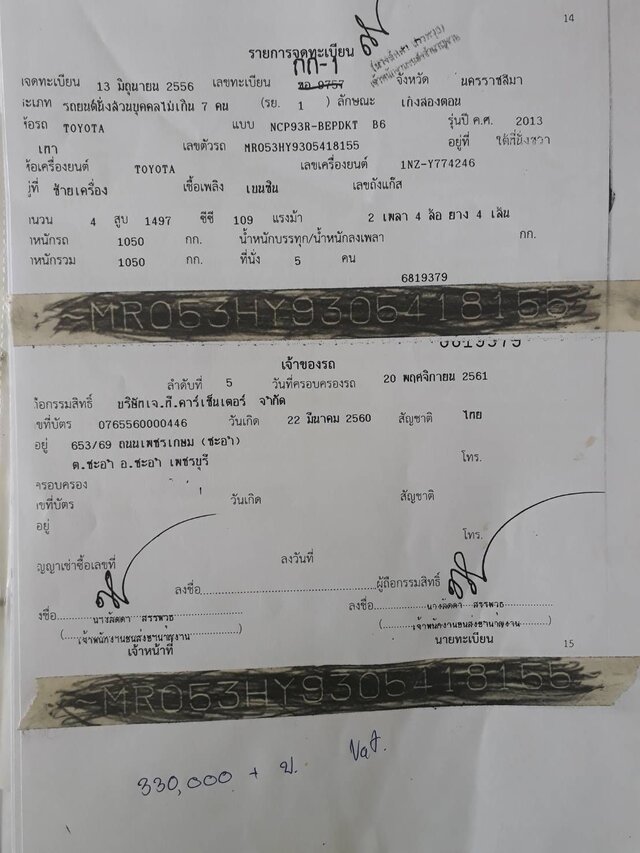 14
รายการจดทะเบียน
กก-1
จดทะเบียน 13 มิถุนายน 2556 เลขทะเบียน ขอ 9757 จังหวัด นครราชสีมา
ประเภท รถยนต์นั่งส่วนบุคคลไม่เกิน 7 คน (รย. 1 ) ลักษณะ เก๋งสองตอน
ห้อรถ TOYOTA แบบ NCP93R-BEPDKT B6 รุ่นปี ค.ศ. 2013
เทา เลขตัวรถ MR053HY9305418155 อยู่ที่ ใต้ที่นั่งขวา
ห้อเครื่องยนต์ TOYOTA เลขเครื่องยนต์ 1NZ-Y774246
ยู่ที่ ซ้ายเครื่อง เชื้อเพลิง เบนซิน เลขถังแก๊ส
านวน 4 สูบ 1497 ซีซี 109 แรงม้า 2 เพลา 4 ล้อ ยาง 4 เส้น
าหนักรถ 1050 กก. น้ำหนักบรรทุก/น้ำหนักลงเพลา กก.
าหนักรวม 1050 กก. ที่นั่ง 5 คน
6819379
~MR053HY9305418155~
6819379
เจ้าของรถ
ลำดับที่ 5 วันที่ครอบครองรถ 20 พฤศจิกายน 2561
ถือกรรมสิทธิ์ บริษัทเจ.ที.คาร์เซ็นเตอร์ จำกัด
ขที่บัตร 0765560000446 วันเกิด 22 มีนาคม 2560 สัญชาติ ไทย
อยู่ 653/69 ถนนเพชรเกษม (ชะอำ)
ต.ชะอำ อ.ชะอำ เพชรบุรี โทร.
ครอบครอง
ขที่บัตร วันเกิด สัญชาติ
อยู่ โทร.
ญญาเช่าซื้อเลขที่ ลงวันที่
ลงชื่อ ผู้ถือกรรมสิทธิ์
งชื่อ นางลัดดา สรรพวุธ ลงชื่อ นางลัดดา สรรพวุธ
(เจ้าพนักงานขนส่งชำนาญงาน) (เจ้าพนักงานขนส่งชำนาญงาน)
เจ้าหน้าที่ นายทะเบียน
15
~MR053HY9305418155~
330,000 + ข. Vat.